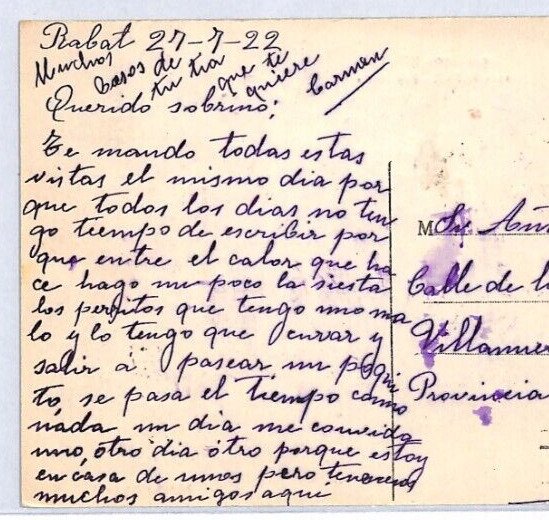 Rabat 27-7-22
Muchos
besos de
tu tia
que te
quiere
Carmen
Querido sobrino;
Te mando todas estas
vistas el mismo dia por
que todos los dias no ten
go tiempo de escribir por
que entre el calor que ha
ce hago un poco la siesta
los perritos que tengo uno ma
lo y lo tengo que curar y
salir á pasear un poqui
to, se pasa el tiempo como
nada un dia me convida
uno, otro dia otro porque estoy
en casa de unos pero tenemos
muchos amigos aqui
M Sr.
Calle de
Provincia